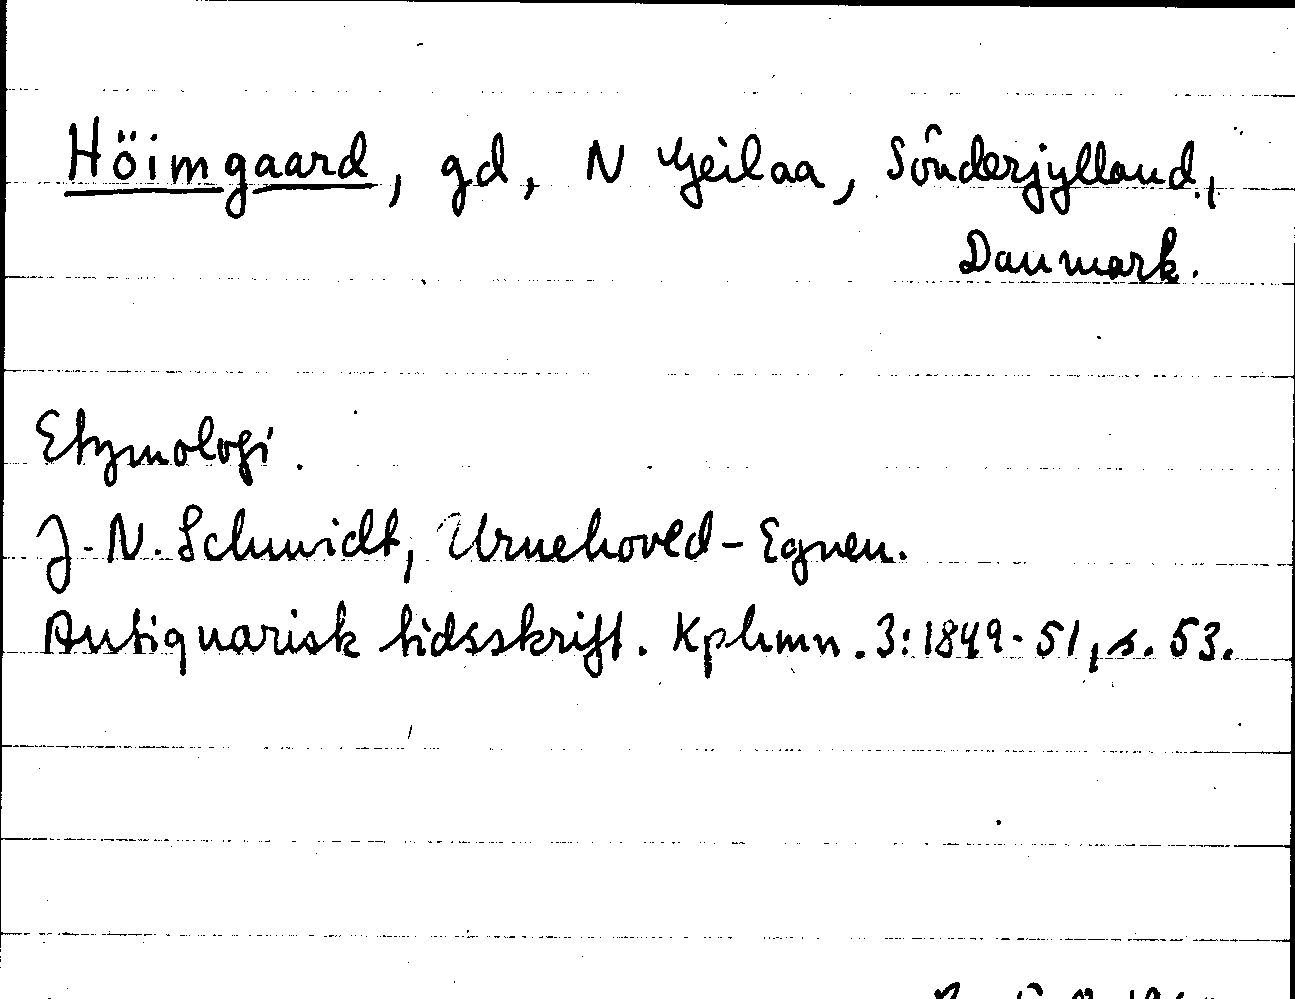 Höimgaard, gd, N Gejlaa, Sönderjylland,
Danmark.
Etymologi.
J.N. Schmidt, Urnehoved-Egnen.
Antiquarisk tidsskrift. Kphmn. 3:1849-51, s. 53.